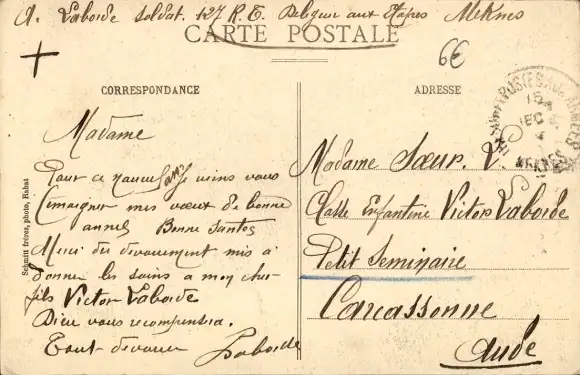 A. Laborde Soldat. 127 R. T. Délégué aux Etapes Meknes
CARTE POSTALE
6€
CORRESPONDANCE
ADRESSE
Madame
Pour ce nouvel an je viens vous
témoigner mes vœux de bonne
année Bonne Santée
Merci du dévouement mis à
donner les soins a mon cher
fils Victor Laborde
Dieu vous recompensera.
Tout dévoué Laborde
Madame Sœur. V.
Classe Enfantine Victor Laborde
Petit Seminaire
Carcassonne
Aude
POSTES AUX ARMEES
15
DEC
MEKNES
Schmitt frères, photo, Rabat